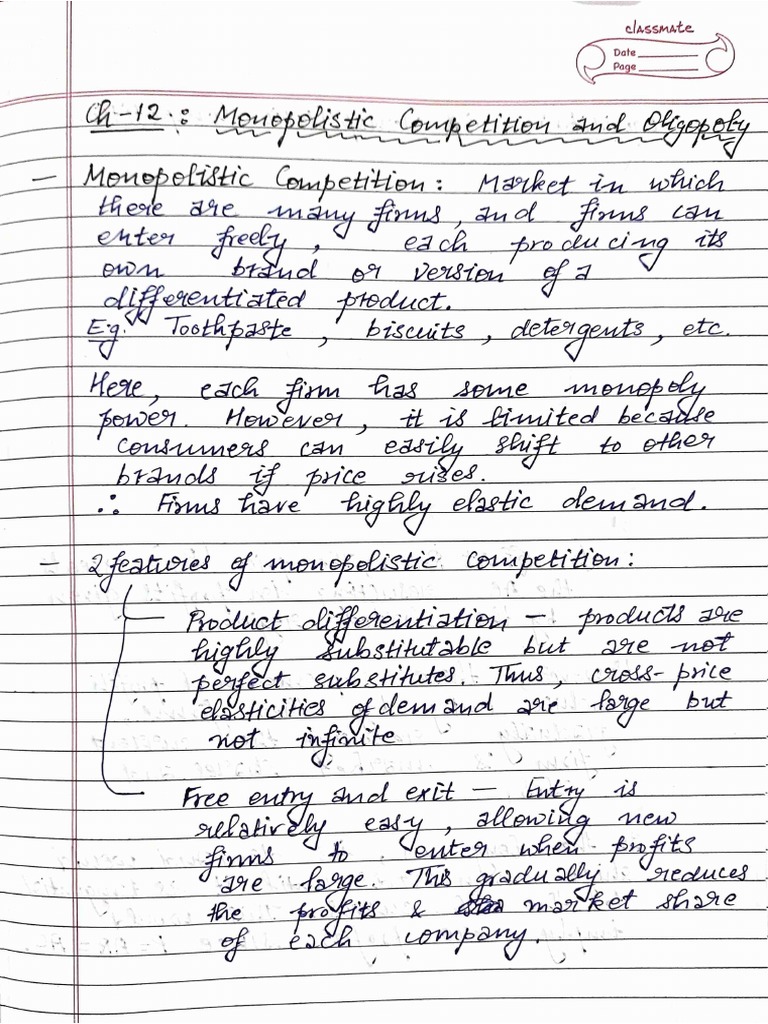 classmate
Date
Page
Ch-12.: Monopolistic Competition and Oligopoly
- Monopolistic Competition: Market in which
there are many firms, and firms can
enter freely, each producing its
own brand or version of a
differentiated product.
E.g. Toothpaste, biscuits, detergents, etc.
Here, each firm has some monopoly
power. However, it is limited because
consumers can easily shift to other
brands if price rises.
∴ Firms have highly elastic demand.
- 2 features of monopolistic competition:
Product differentiation - products are
highly substitutable but are not
perfect substitutes. Thus, cross-price
elasticities of demand are large but
not infinite
Free entry and exit - Entry is
relatively easy, allowing new
firms to enter when profits
are large. This gradually reduces
the profits & market share
of each company.